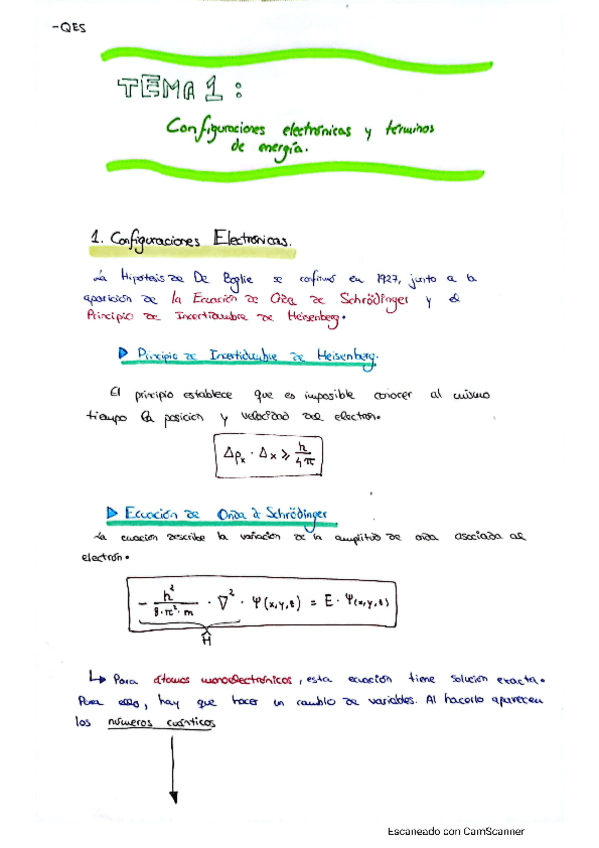 -QES
TEMA 1:
Configuraciones electrónicas y términos
de energía.
1. Configuraciones Electrónicas.
La Hipótesis de De Boglie se confirmó en 1927, junto a la
aparición de la Ecuación de Onda de Schrödinger y el
Principio de Incertidumbre de Heisenberg.
Principio de Incertidumbre de Heisenberg.
El principio establece que es imposible conocer al mismo
tiempo la posición y velocidad del electrón.
Δρx · Δx ≥ h / 4π
Ecuación de Onda d Schrödinger
La ecuación describe la variación de la amplitud de onda asociada al
electrón.
- h² / 8·π²·m · ∇² · Ψ(x,y,z) = E · Ψ(x,y,z)
Ĥ
↳ Para átomos monoelectrónicos, esta ecuación tiene solución exacta.
Para ello, hay que hacer un cambio de variables. Al hacerlo aparecen
los números cuánticos
Escaneado con CamScanner